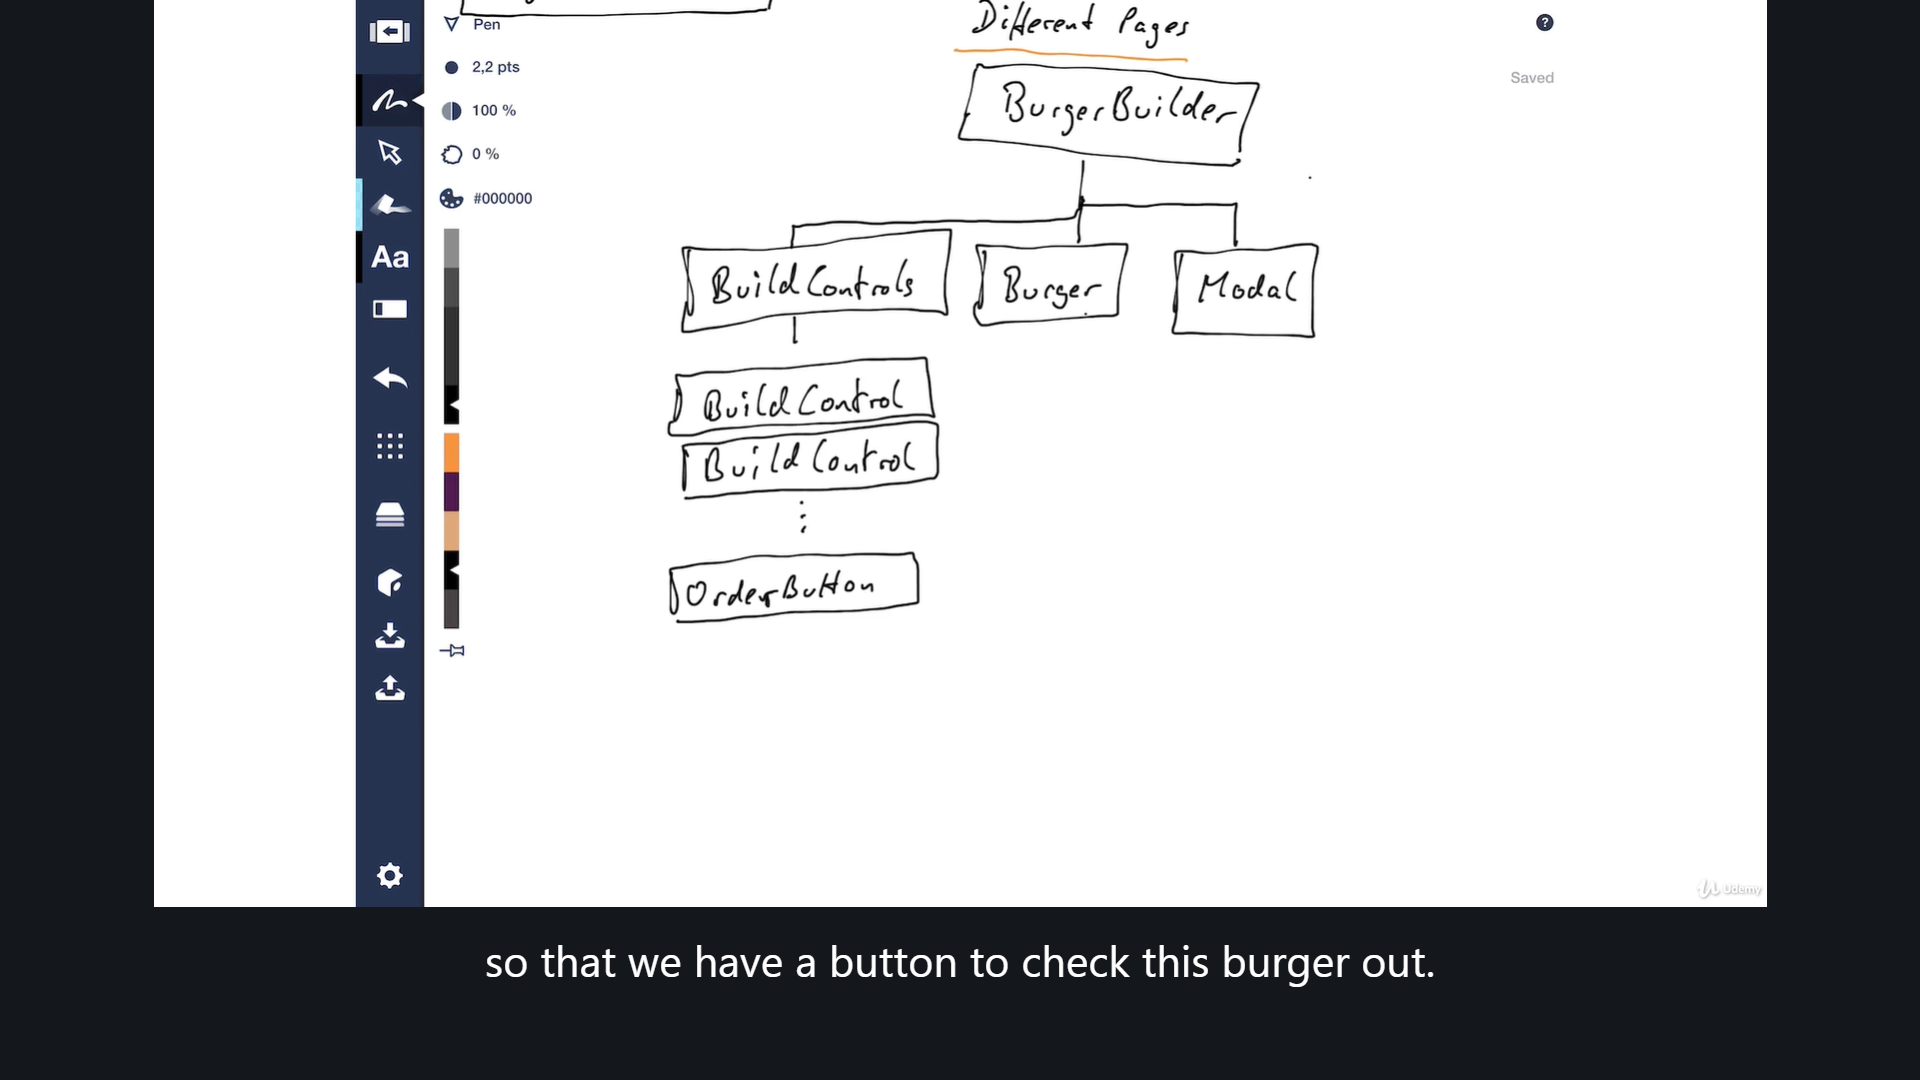 Pen
2,2 pts
100 %
0 %
#000000
Aa
Different Pages
?
Saved
BurgerBuilder
BuildControls
Burger
Modal
BuildControl
BuildControl
⋮
OrderButton
Udemy
so that we have a button to check this burger out.